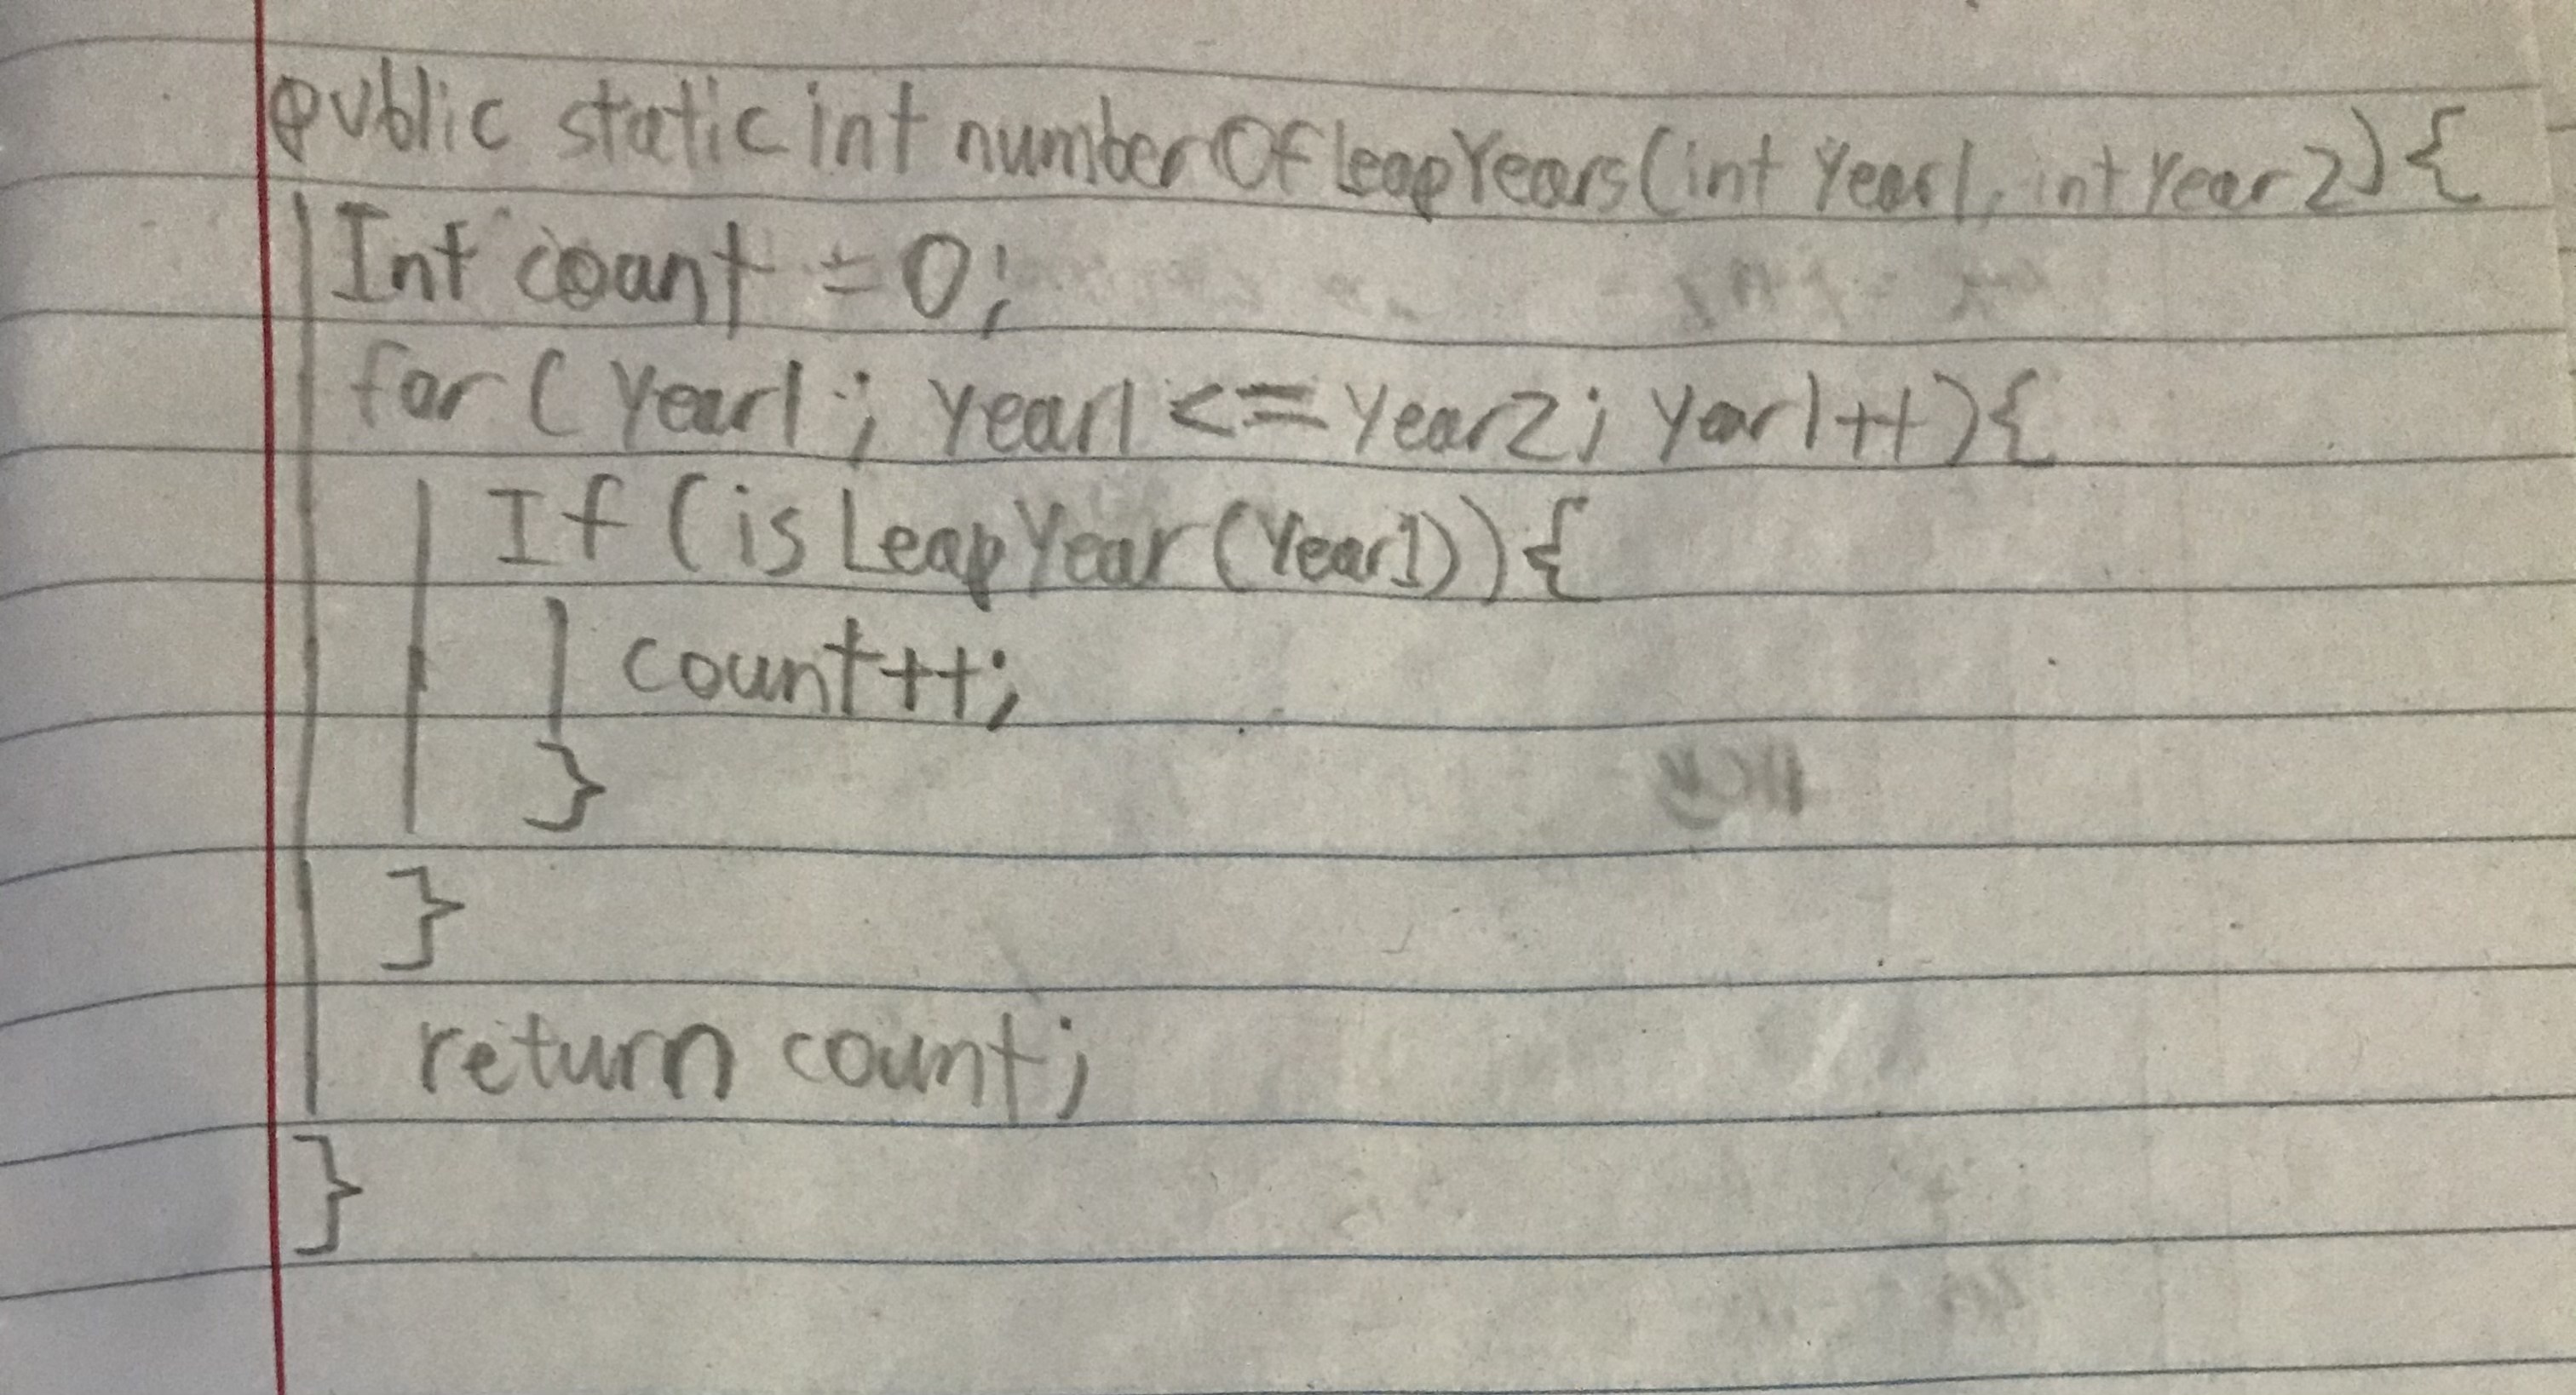 public static int numberOfLeapYears(int year1, int year2){
Int count = 0;
for ( year1 ; year1 <= year2; year1++){
If (isLeapYear(year1)){
count++;
}
}
return count;
}